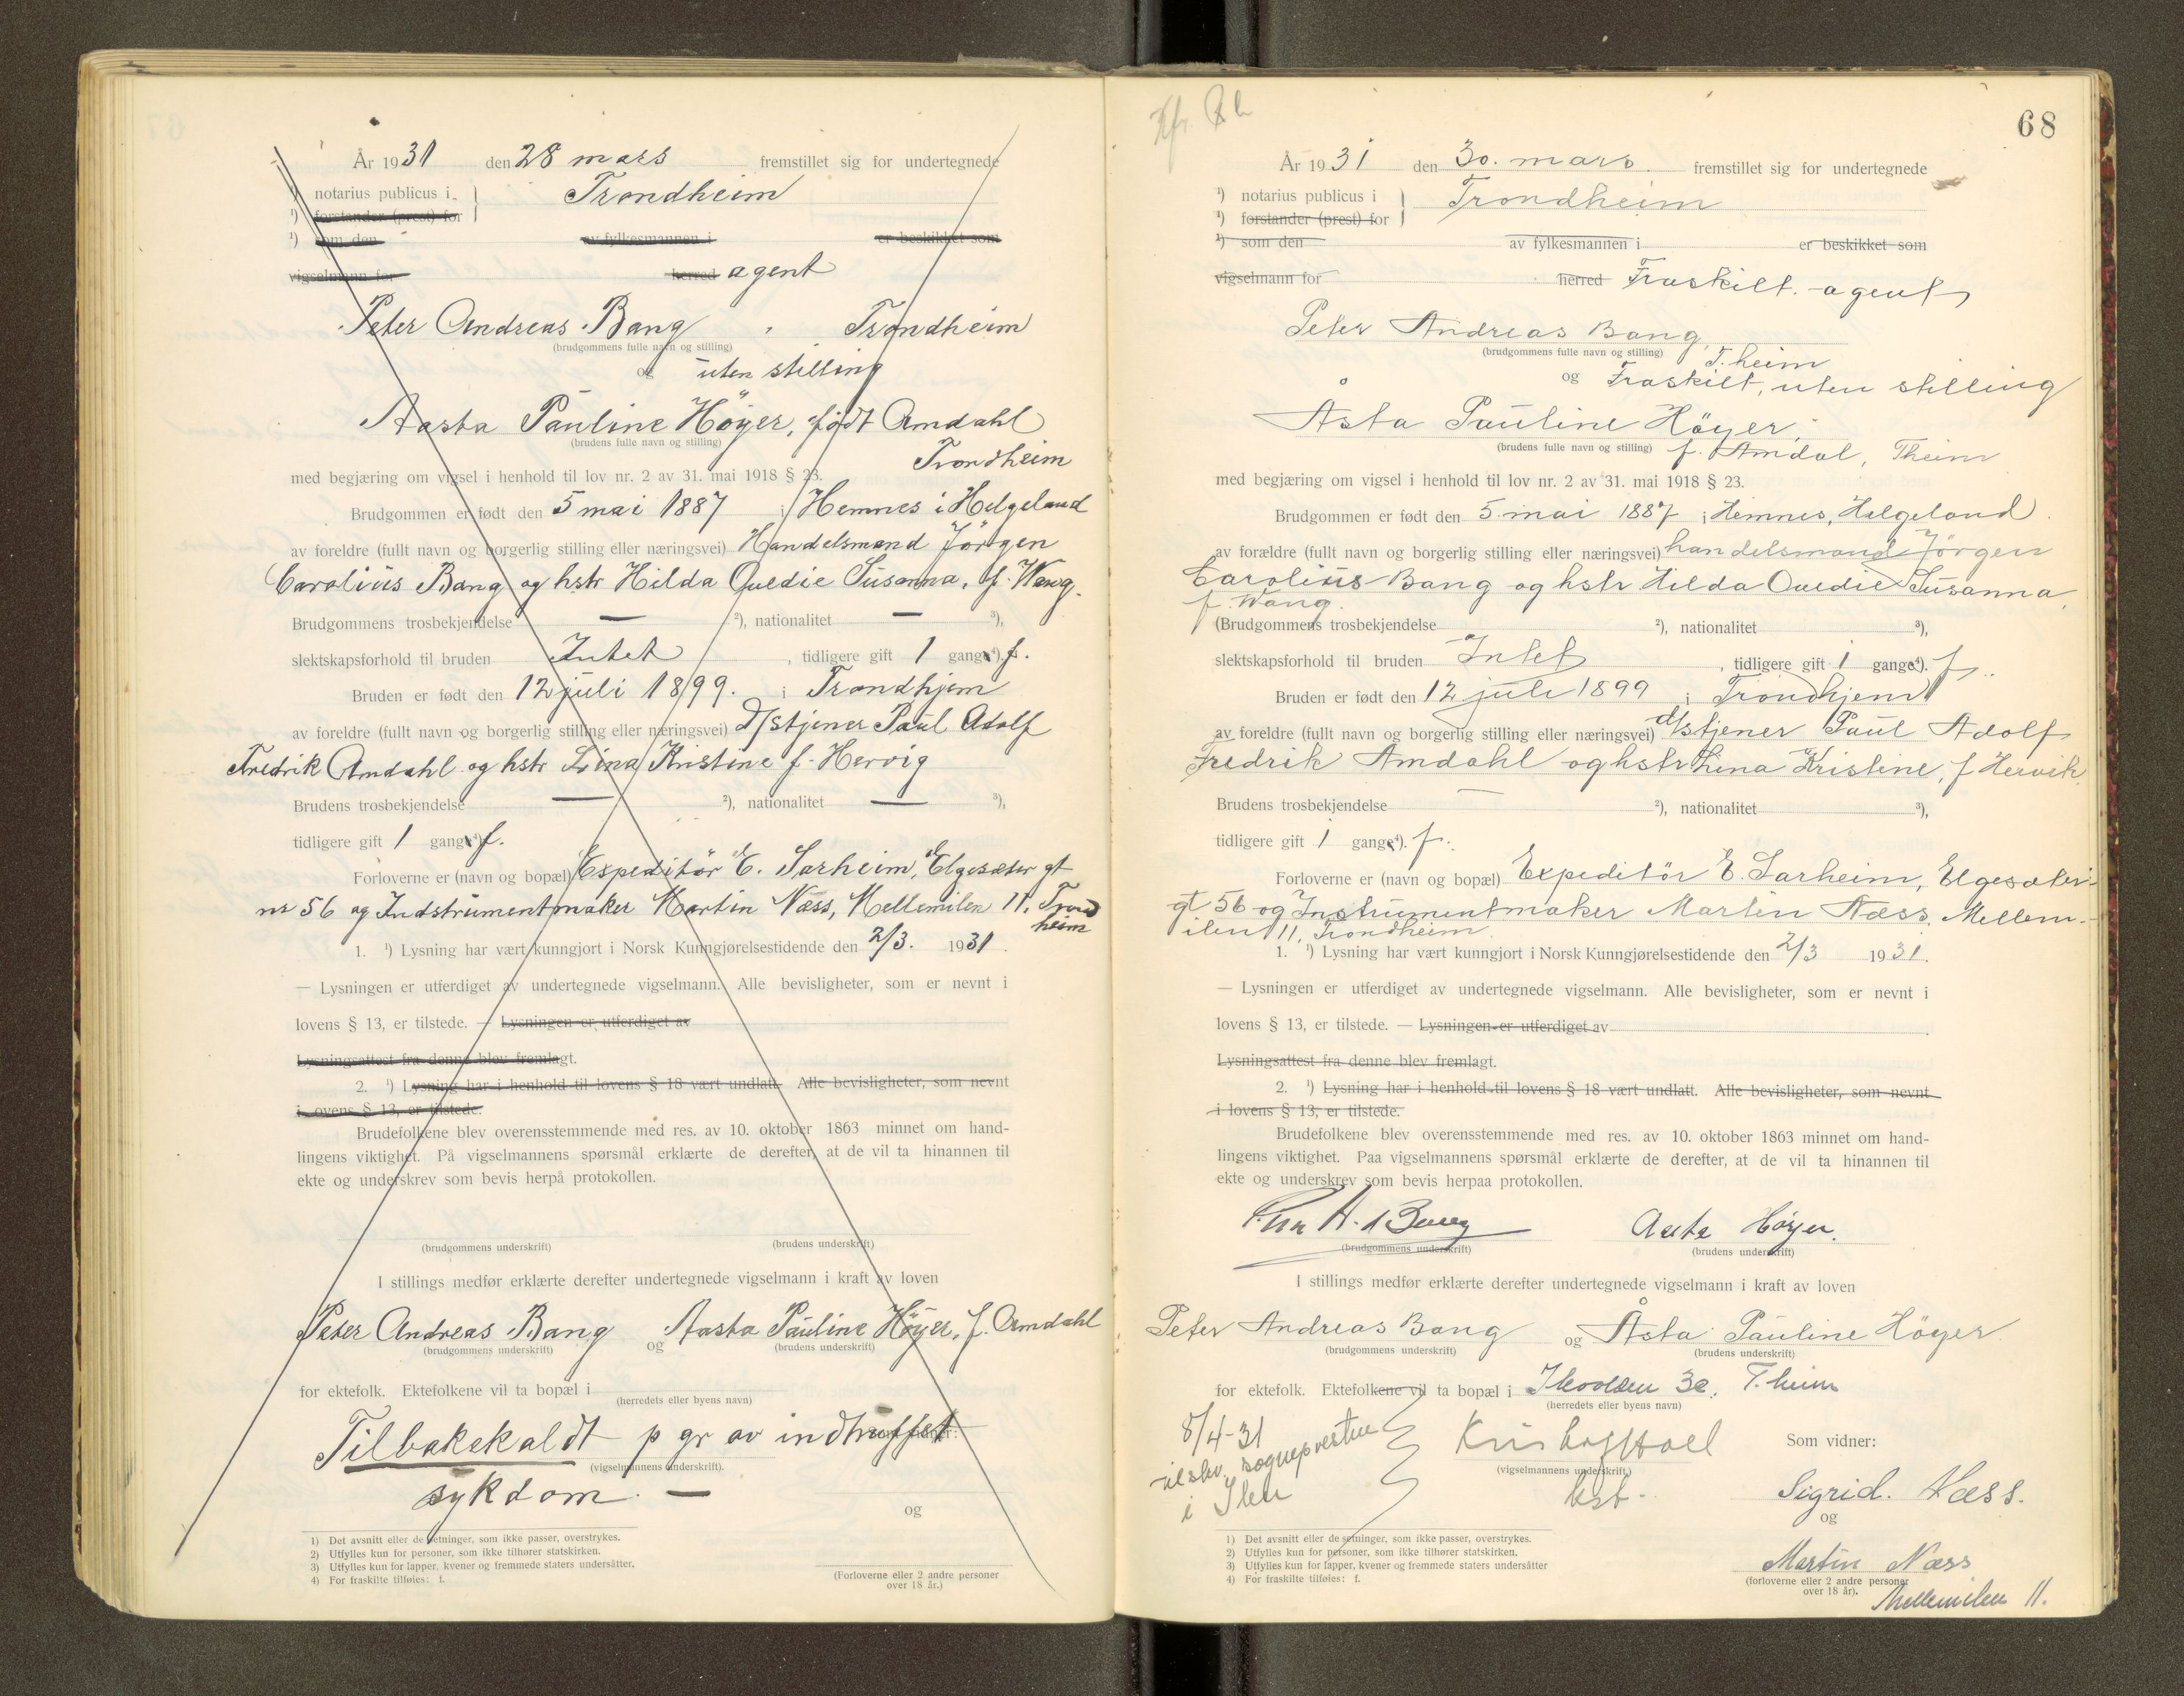 År 1931 den 28 mars fremstillet sig for undertegnede
¹) notarius publicus i } Trondheim
¹) forstander (prest) for
¹) som den av fylkesmannen i er beskikket som
vigselmann for herred agent
Peter Andreas Bang, Trondheim
(brudgommens fulle navn og stilling)
og uten stilling
Aasta Pauline Höyer, født Amdahl
(brudens fulle navn og stilling)
Trondheim
med begjæring om vigsel i henhold til lov nr. 2 av 31. mai 1918 § 23.
Brudgommen er født den 5 mai 1887 i Hemnes i Helgeland
av foreldre (fullt navn og borgerlig stilling eller næringsvei) Handelsmand Jörgen
Carolius Bang og hstr Hilda Ovedie Susanna, f. Wang.
Brudgommens trosbekjendelse — ²), nationalitet — ³),
slektskapsforhold til bruden Intet, tidligere gift 1 gange⁴). f.
Bruden er født den 12 juli 1899. i Trondhjem
av foreldre (fullt navn og borgerlig stilling eller næringsvei) d/stjener Paul Adolf
Fredrik Amdahl og hstr Lina Kristine f. Hervig
Brudens trosbekjendelse — ²), nationalitet — ³),
tidligere gift 1 gange⁴) f.
Forloverne er (navn og bopæl) Expeditör E. Sarheim, Elgesæter gt
nr 56 og Indstrumentmaker Martin Næss, Mellemilen 11. Trond
heim
1. ¹) Lysning har vært kunngjort i Norsk Kunngjørelsestidende den 2/3. 1931.
— Lysningen er utferdiget av undertegnede vigselmann. Alle bevisligheter, som er nevnt i
lovens § 13, er tilstede. — Lysningen er utferdiget av
Lysningsattest fra denne blev fremlagt.
2. ¹) Lysning har i henhold til lovens § 18 vært undlatt. Alle bevisligheter, som nevnt
i lovens § 13, er tilstede.
Brudefolkene blev overensstemmende med res. av 10. oktober 1863 minnet om hand-
lingens viktighet. På vigselmannens spørsmål erklærte de derefter, at de vil ta hinannen til
ekte og underskrev som bevis herpå protokollen.
(brudgommens underskrift) (brudens underskrift)
I stillings medfør erklærte derefter undertegnede vigselmann i kraft av loven
Peter Andreas Bang og Aasta Pauline Höyer, f. Amdahl
(brudgommens underskrift) (brudens underskrift)
for ektefolk. Ektefolkene vil ta bopæl i
(herredets eller byens navn)
Tilbakekaldt p gr av indtruffet
(vigselmannens underskrift).
sykdom. —
og
1) Det avsnitt eller de setninger, som ikke passer, overstrykes.
2) Utfylles kun for personer, som ikke tilhører statskirken.
3) Utfylles kun for lapper, kvener og fremmede staters undersåtter.
4) For fraskilte tilføies: f.
(Forloverne eller 2 andre personer
over 18 år.)
68
År 1931 den 30. mars. fremstillet sig for undertegnede
¹) notarius publicus i } Trondheim
¹) forstander (prest) for
¹) som den av fylkesmannen i er beskikket som
vigselmann for herred Fraskilt. agent
Peter Andreas Bang,
(brudgommens fulle navn og stilling) T.heim
og Fraskilt, uten stilling
Åsta Pauline Höyer,
(brudens fulle navn og stilling) f. Amdal, Theim
med begjæring om vigsel i henhold til lov nr. 2 av 31. mai 1918 § 23.
Brudgommen er født den 5. mai 1887 i Hemnes, Helgeland.
av forældre (fullt navn og borgerlig stilling eller næringsvei) handelsmand Jörgen
Carolius Bang og hstr Hilda Ovedie Susanna,
f. Wang.
(Brudgommens trosbekjendelse ²), nationalitet ³),
slektskapsforhold til bruden Intet, tidligere gift 1 gange⁴). f.
Bruden er født den 12 juli 1899 i Trondhjem
av foreldre (fullt navn og borgerlig stilling eller næringsvei) d/stjener Paul Adolf
Fredrik Amdahl og hstr Lina Kristine, f Hervik.
Brudens trosbekjendelse — ²), nationalitet ³),
tidligere gift 1 gange⁴). f.
Forloverne er (navn og bopæl) Expeditör E. Sarheim, Elgesæter-
gt 56 og Instrumentmaker Martin Næss. Mellem-
ilen 11, Trondheim.
1. ¹) Lysning har vært kunngjort i Norsk Kunngjørelsestidende den 2/3 1931.
— Lysningen er utferdiget av undertegnede vigselmann. Alle bevisligheter, som er nevnt i
lovens § 13, er tilstede. — Lysningen er utferdiget av
Lysningsattest fra denne blev fremlagt.
2. ¹) Lysning har i henhold til lovens § 18 vært undlatt. Alle bevisligheter, som nevnt
i lovens § 13, er tilstede.
Brudefolkene blev overensstemmende med res. av 10. oktober 1863 minnet om hand-
lingens viktighet. Paa vigselmannens spørsmål erklærte de derefter, at de vil ta hinannen til
ekte og underskrev som bevis herpaa protokollen.
Bang Aasta Höyer.
(brudgommens underskrift) (brudens underskrift)
I stillings medfør erklærte derefter undertegnede vigselmann i kraft av loven
Peter Andreas Bang og Åsta Pauline Höyer.
(brudgommens underskrift) (brudens underskrift)
for ektefolk. Ektefolkene vil ta bopæl i T.heim
(herredets eller byens navn)
8/4-31
sognepresten
i Ilen
(vigselmannens underskrift)
kst.
Som vidner:
Sigrid. Næss.
og
Martin Næss
(forloverne eller 2 andre personer
over 18 år).
Mellemilen 11.
1) Det avsnitt eller de setninger, som ikke passer, overstrykes.
2) Utfylles kun for personer, som ikke tilhører statskirken.
3) Utfylles kun for lapper, kvener og fremmede staters undersåtter
4) For fraskilte tilføies: f.